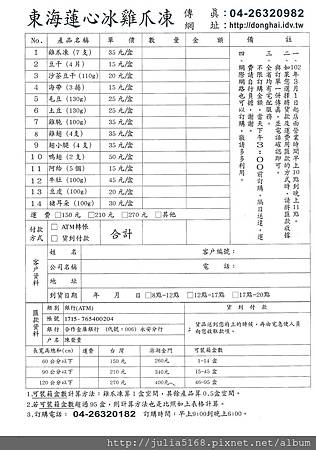 東海蓮心冰雞爪凍
傳 真：04-26320982
網 址：http://donghai.idv.tw
No. 產品名稱 單價 數量 金額 備註
1 雞爪凍 (7支) 35 元/盒
2 豆干 (4片) 15 元/盒
3 沙茶豆干(110g) 20 元/盒
4 海帶 (3捲) 15 元/盒
5 毛豆 (130g) 25 元/盒
6 土豆 (130g) 25 元/盒
7 雞胗 (100g) 35 元/盒
8 雞翅 (4支) 35 元/盒
9 翅小腿 (4支) 35 元/盒
10 鴨翅 (2支) 50 元/盒
11 阿給 (5個) 15 元/盒
12 牛肚 (100g) 45 元/盒
13 豆皮 (100g) 30 元/盒
14 豬耳朵 (100g) 30 元/盒
一、102年3月1日起店的營業時間早上10點到晚上11點。
四、網際網路也可以訂購，敬請多多利用。
運 費 □150元 □210元 □270元 □其他
付款方式 □ATM轉帳 □貨到付款 合計
客戶資料
姓 名 客戶編號：
公司名稱 電 話：
地 址
到貨日期 年 月 日 □8點-12點 □12點-17點 □17點-20點
匯款資料
類別 銀行(ATM) 貨到付款
帳號 1715-765400204
銀行 合作金庫銀行 (代號：006) 永安分行
戶名 陳萱蓁
貨品送到您府上的時候，再由宅急便人員向您收取款項。
長寬高總和(cm) 運費 台灣 澎湖金門 可裝箱盒數
60 公分以下 150元 260元 1-14盒
90 公分以下 210元 340元 15-45盒
120 公分以下 270元 400元 46-95盒
1.可裝箱盒數計算方法：雞爪凍算1盒空間，其餘產品算0.5盒空間。
2.若可裝箱盒數超過95盒，則計算方法也是比照如上表格計算。
3.訂購電話： 04-26320182 訂購時間：早上9:00到晚上6:00。
http://julia5168.pixnet.net/album